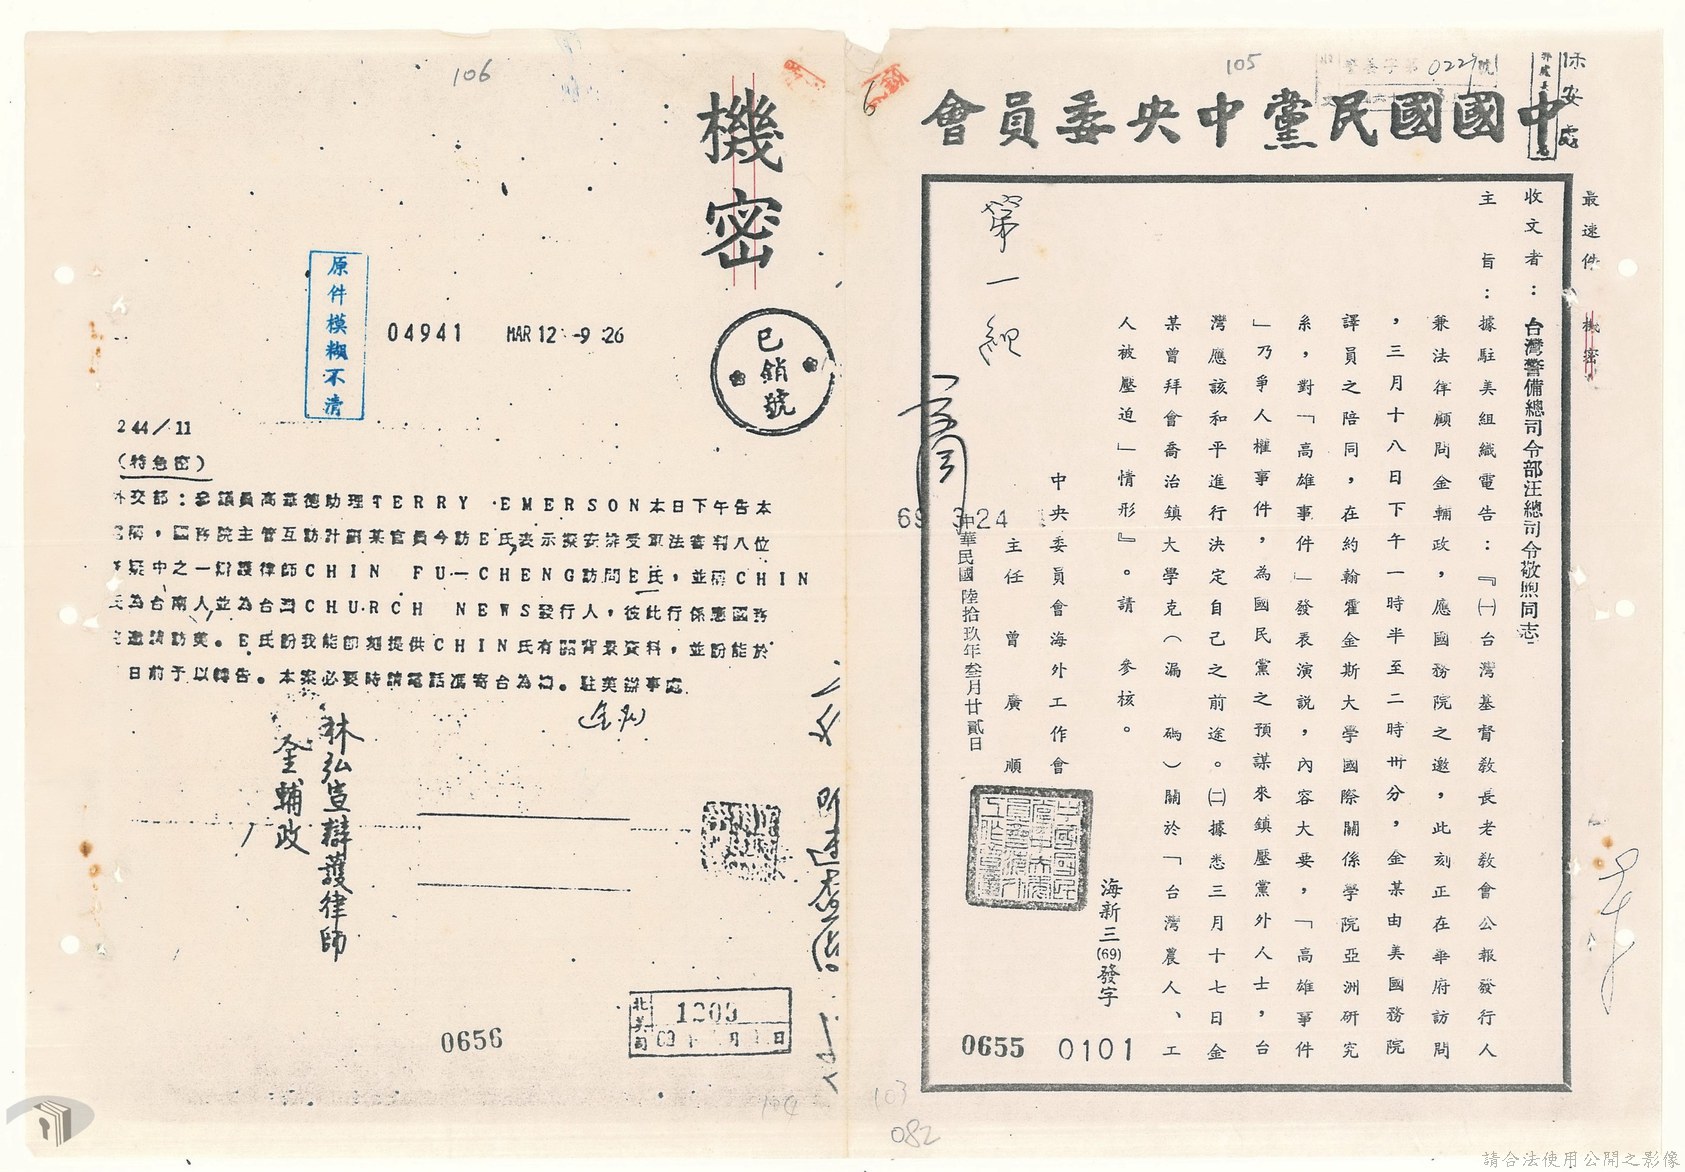 105
0227
保安處
中國國民黨中央委員會
最速件
機密
收文者：台灣警備總司令部汪總司令敬煦同志
主旨：據駐美組織電告：『㈠台灣基督教長老教會公報發行人
兼法律顧問金輔政，應國務院之邀，此刻正在華府訪問
，三月十八日下午一時半至二時卅分，金某由美國務院
譯員之陪同，在約翰霍金斯大學國際關係學院亞洲研究
系，對「高雄事件」發表演說，內容大要，「高雄事件
」乃爭人權事件，為國民黨之預謀來鎮壓黨外人士，台
灣應該和平進行決定自己之前途。㈡據悉三月十七日金
某曾拜會喬治鎮大學克（漏碼）關於「台灣農人、工
人被壓迫」情形』。請參核。
海新三(69)發字
0101
中央委員會海外工作會
主任曾廣順
中華民國陸拾玖年叁月廿貳日
69 3.24
第一組
0655
103
082
106
機密
已銷號
原件模糊不清
04941 MAR 12 -9:26
244/11
(特急密)
外交部：參議員高華德助理TERRY EMERSON本日下午告本
，國務院主管互訪計劃某官員今訪E氏表示擬安排受軍法審判八位
中之一辯護律師CHIN FU-CHENG訪問E氏，並稱CHIN
氏為台南人並為台灣CHURCH NEWS發行人，彼此行係應國務
邀請訪美。E氏盼我能即刻提供CHIN氏有關背景資料，並盼能於
日前予以轉告。本案必要時請電話馮寄台為禱。駐美辦事處
林弘宣辯護律師
金輔政
北美司
1203
0656
104
請合法使用公開之影像